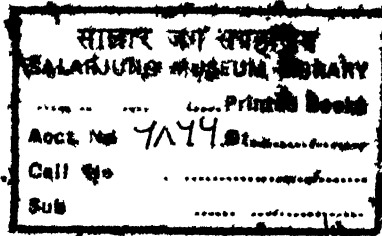 सालार जंग संग्रहालय
SALARJUNG MUSEUM LIBRARY
Printed Books
Acct. No Dt.
Call No
Sub